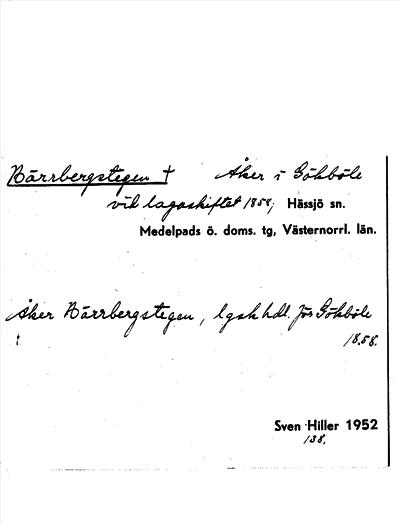 Bärrbergstegen † Åker i Gökböle
vid lagaskiftet 1858; Hässjö sn.
Medelpads ö. doms. tg, Västernorrl. län.
Åker Bärrbergstegen, lgskhdl. för Gökböle
1858.
Sven Hiller 1952
138.